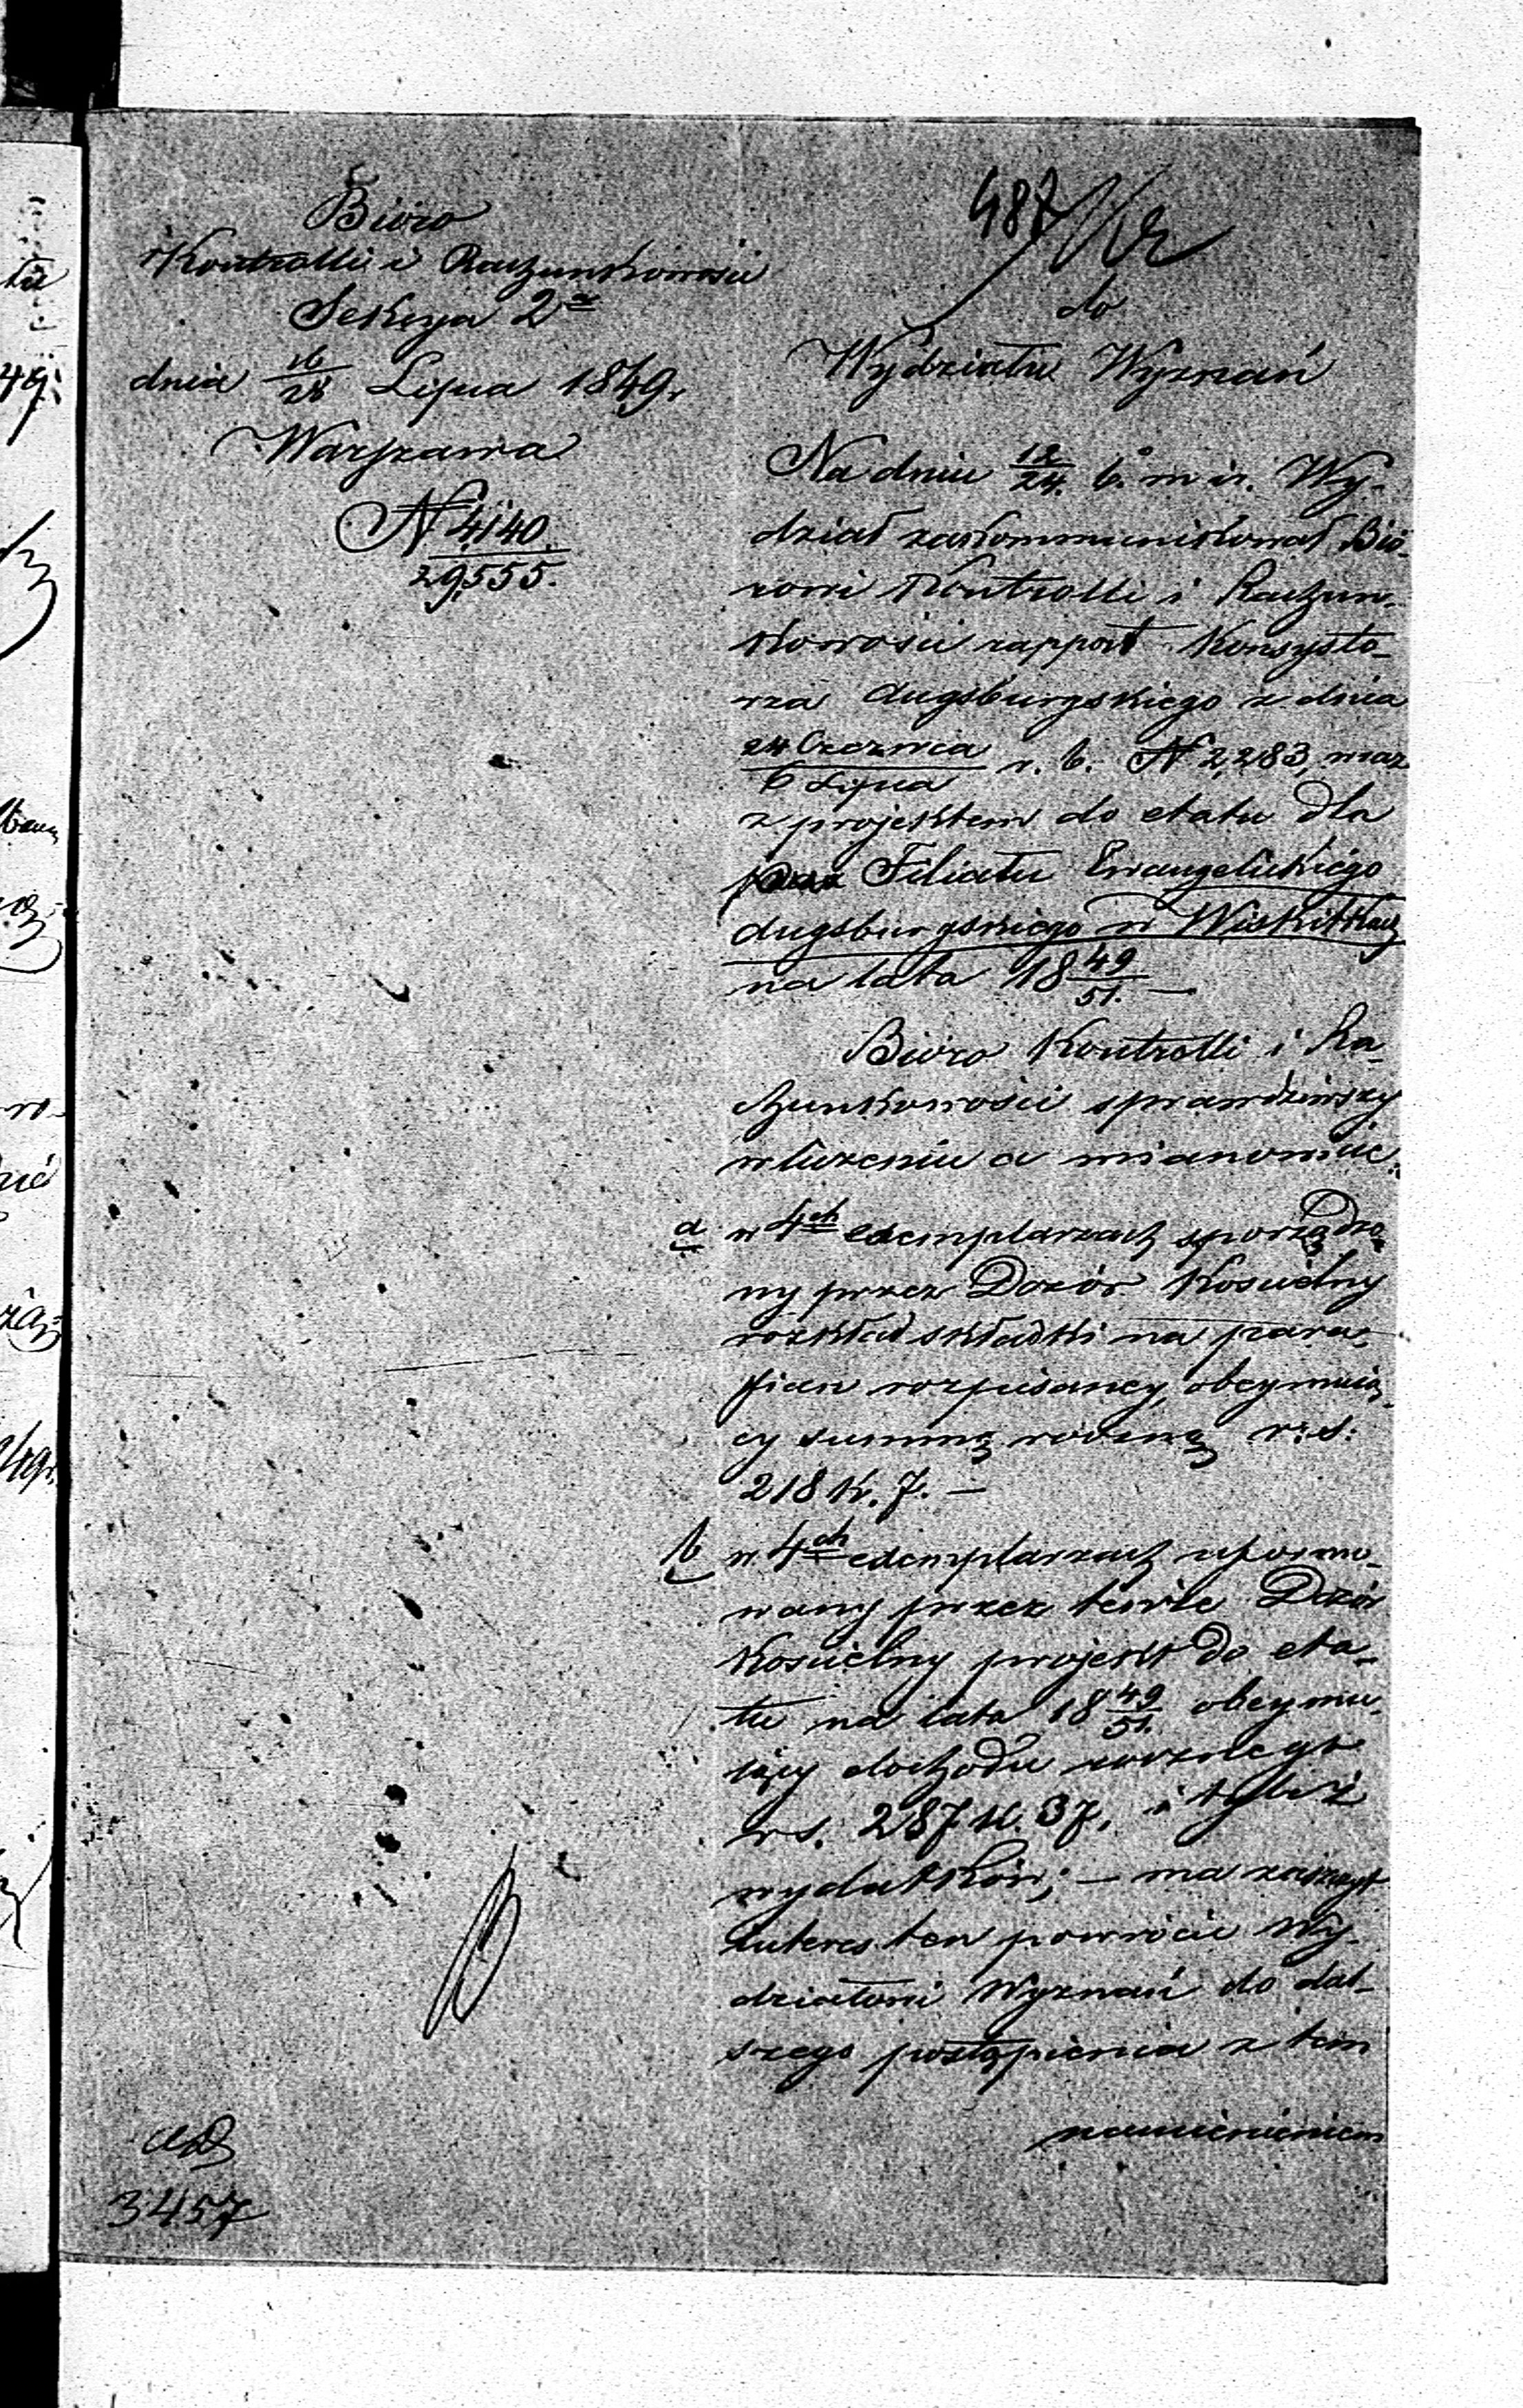 Bióro
Kontrolli i Rachunkowości
Sekcya 2ª
dnia 16/28 Lipca 1849 r
Warszawa
N 4140.
29,555.
487
do
Wydziału Wyznań
Na dniu 12/24. b. m i r. Wy-
dział zakommunikował Bió-
rowi Kontrolli i Rachun-
kowości rapport Konsysto-
rza Augsburgskiego z dnia
24 Czerwca/6 Lipca r. b. N 2,283, wraz
z projektem do etatu dla
Filiału Ewangelickiego
Augsburgskiego w Wiskitkach
na lata 18 49/51. —
Bióro Kontrolli i Ra-
chunkowości sprawdziwszy
w liczeniu a mianowicie:
a w 4ch exemplarzach sporządzo-
ny przez Dozór Kościelny
rozkład składki na para-
fian rozpisaney, obeymuią-
cy summę roczną r: s:
218 k. 7. —
b w 4ch exemplarzach uformo-
wany przez tenże Dozór
Kościelny projekt do eta-
tu na lata 18 49/51. obeymu-
iący dochodu rocznego
rs. 287 k. 37, i tyleż
wydatków; — ma zaszczyt
interes ten powrócić Wy-
działowi Wyznań do dal-
szego postąpienia z tem
namienieniem
3457